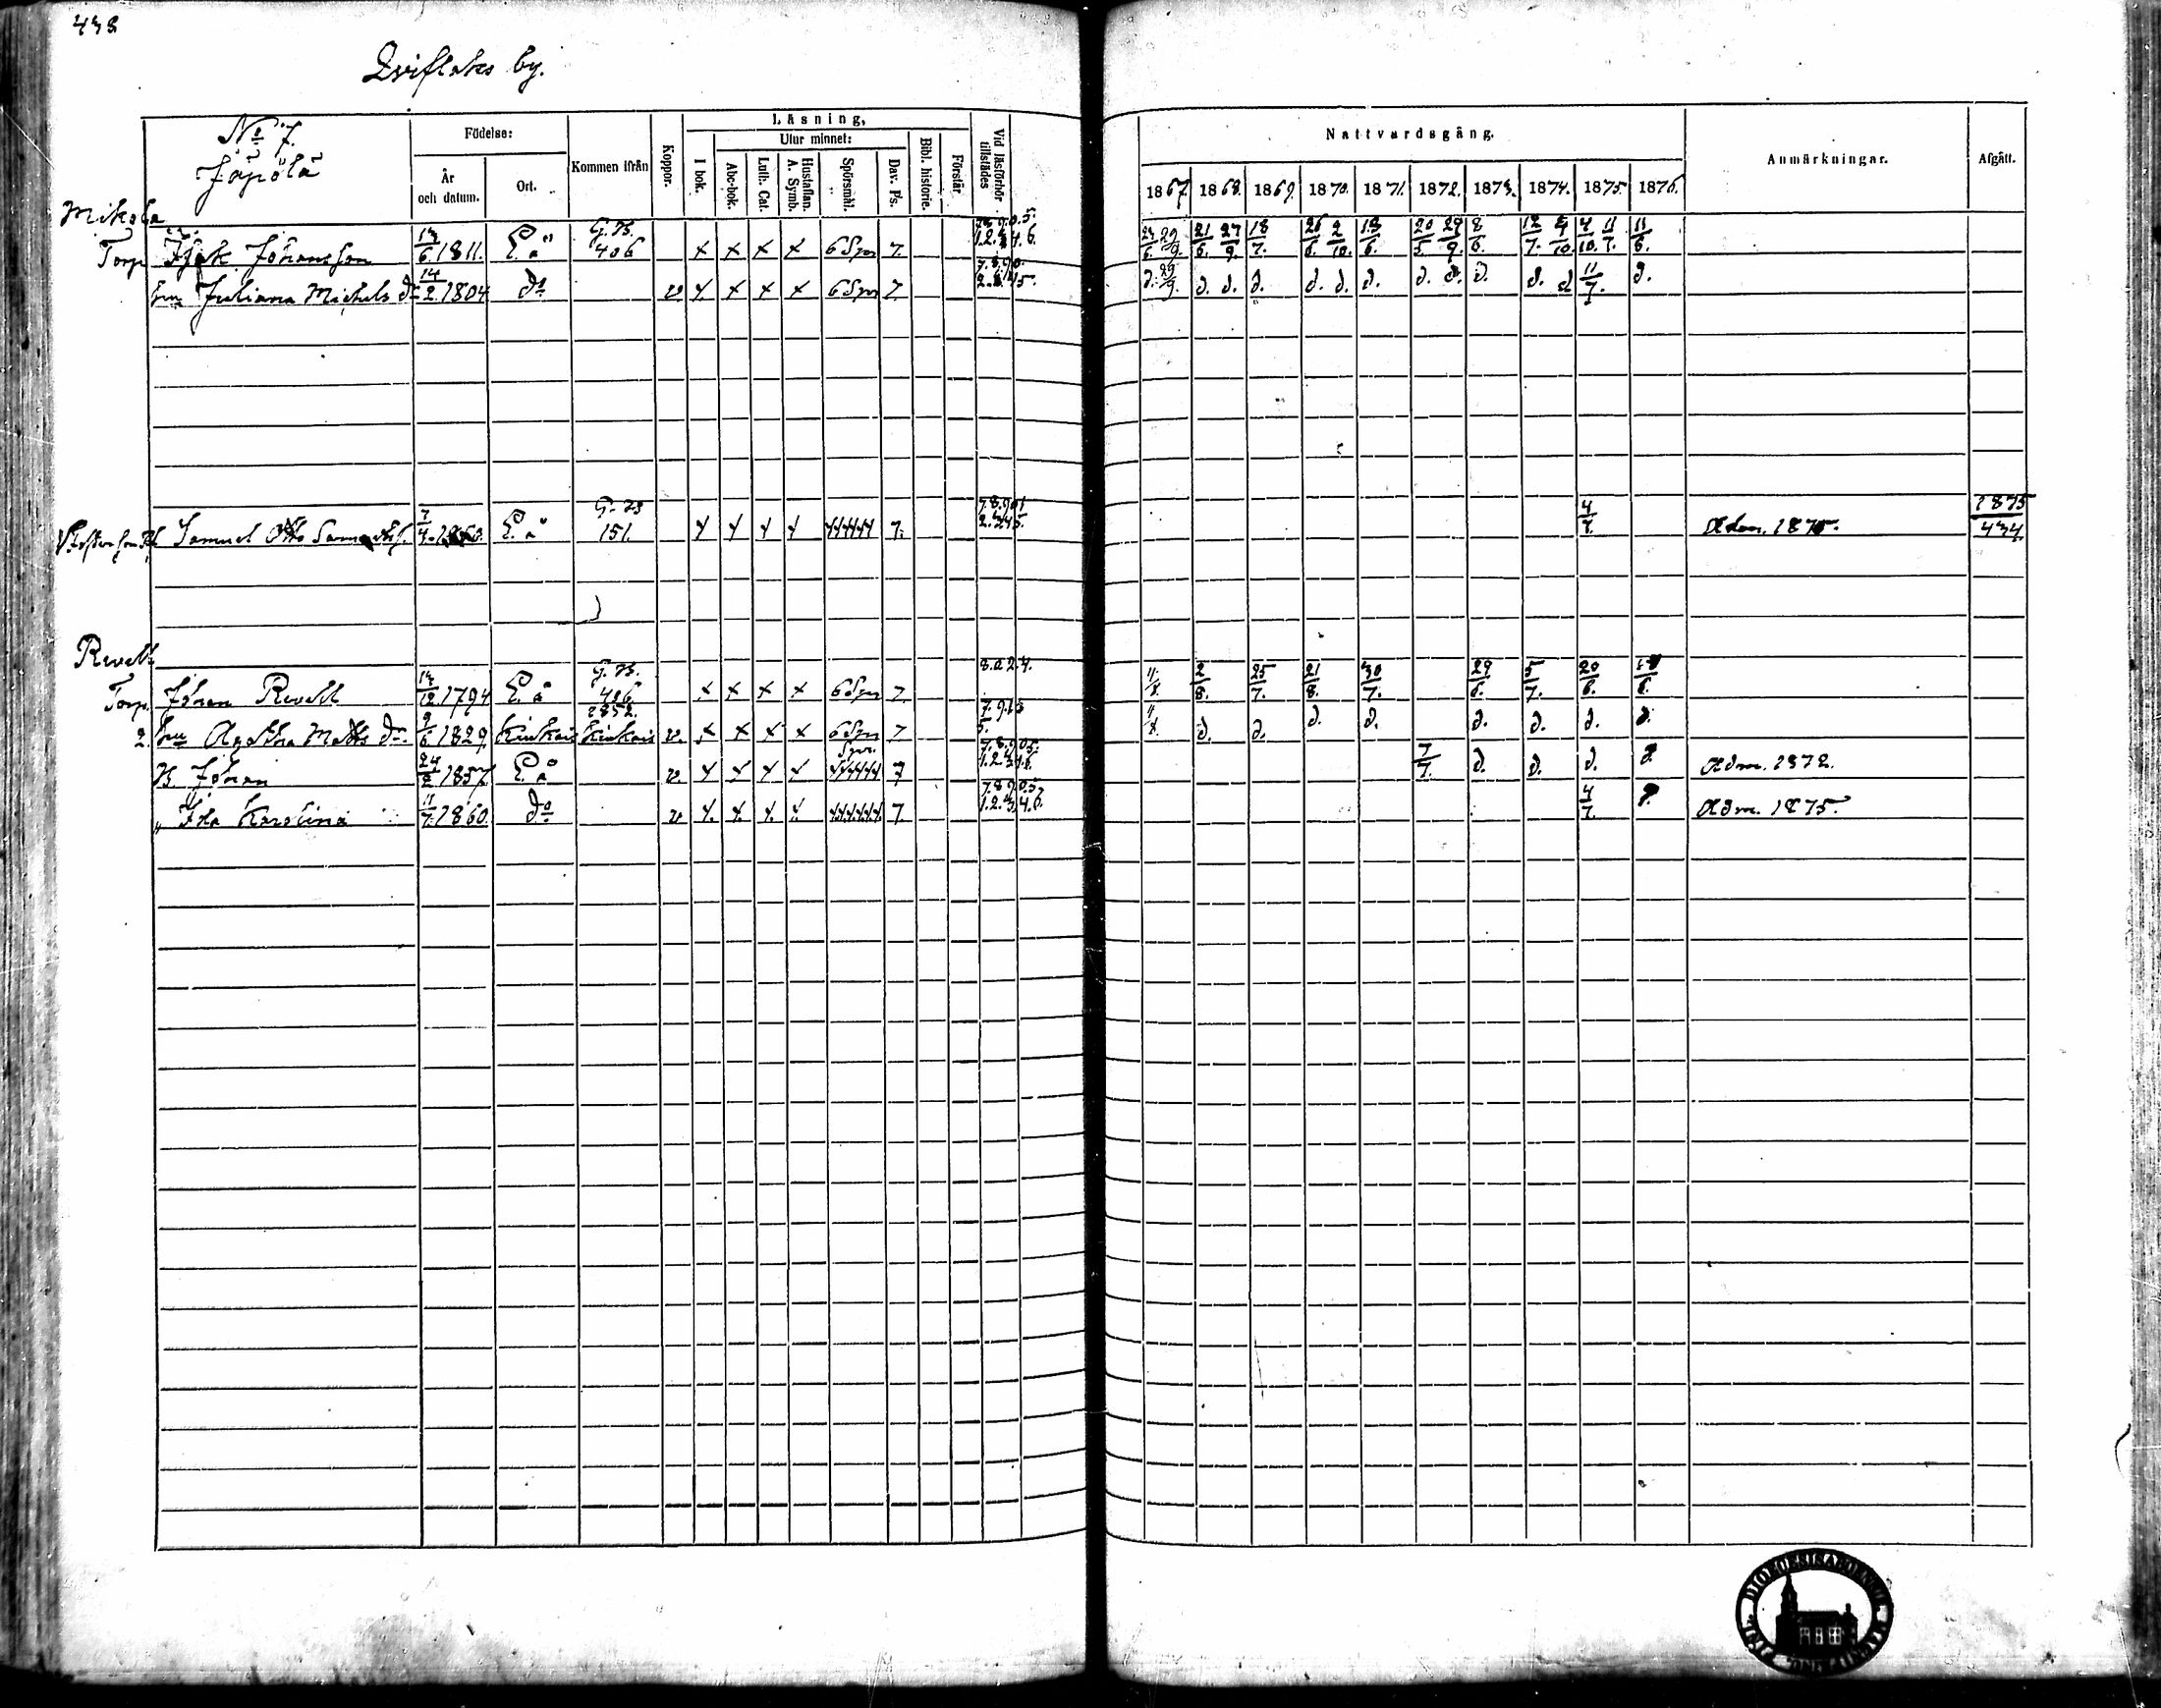 438
Qvifloks by.
№ 7.
Jäpölä
Födelse:
År och datum.
Ort.
Kommen ifrån
Koppor.
Läsning,
I bok.
Utur minnet:
Abc-bok.
Luth. Cat.
Hustaflan. A. Symb.
Spörsmål.
Dav. Ps.
Bibl. historie.
Förstår.
Vid läsförhör tillstädes
Nattvardsgång.
1867. 1868. 1869. 1870. 1871. 1872. 1873. 1874. 1875. 1876.
Anmärkningar.
Afgått.
Mikola
Torp. Isak Johansson 13/6 1811. E. å G. B. 406 x x x x 6 Spm 7. 21/6. 27/9. 18/7. 26/6. 2/10. 18/6. 20/5. 29/9. 8/6. 12/7. 4/10. 4/10. 11/7. 11/6.
hu Juliana Michels dr 14/2 1804 do v x x x x 6 Spm 7. d. 29/9. d. d. d. d. d. d. d. d. d. d. d 11/7. d.
Samuel Otto Samuelss. 7/4 E. å G. B 151. x x x x 7. 4/7. Adm. 1875. 1875 434
Revell
Torp. Johan Revell 13/12 1794 E. å G. B. 406 x x x x 6 Spm 7. 8.0.2.4. 11/8. 2/8. 25/7. 21/8. 30/7. 29/6. 5/7. 20/6. 18/6.
2. hu Agatha Matts dr. 9/6 1829. Kiukais 1852. Kiukais v. x x x x 6 Spm 7 11/8. d. d. d. d. d. d. d. d.
B. Johan 24/2 1857. E. å v. x x x x Spm. 7 7/7. d. d. d. d. Adm. 1872.
" Ida Karolina 11/7 1860. do v x. x. x. x. 7 4/7. d. Adm. 1875.